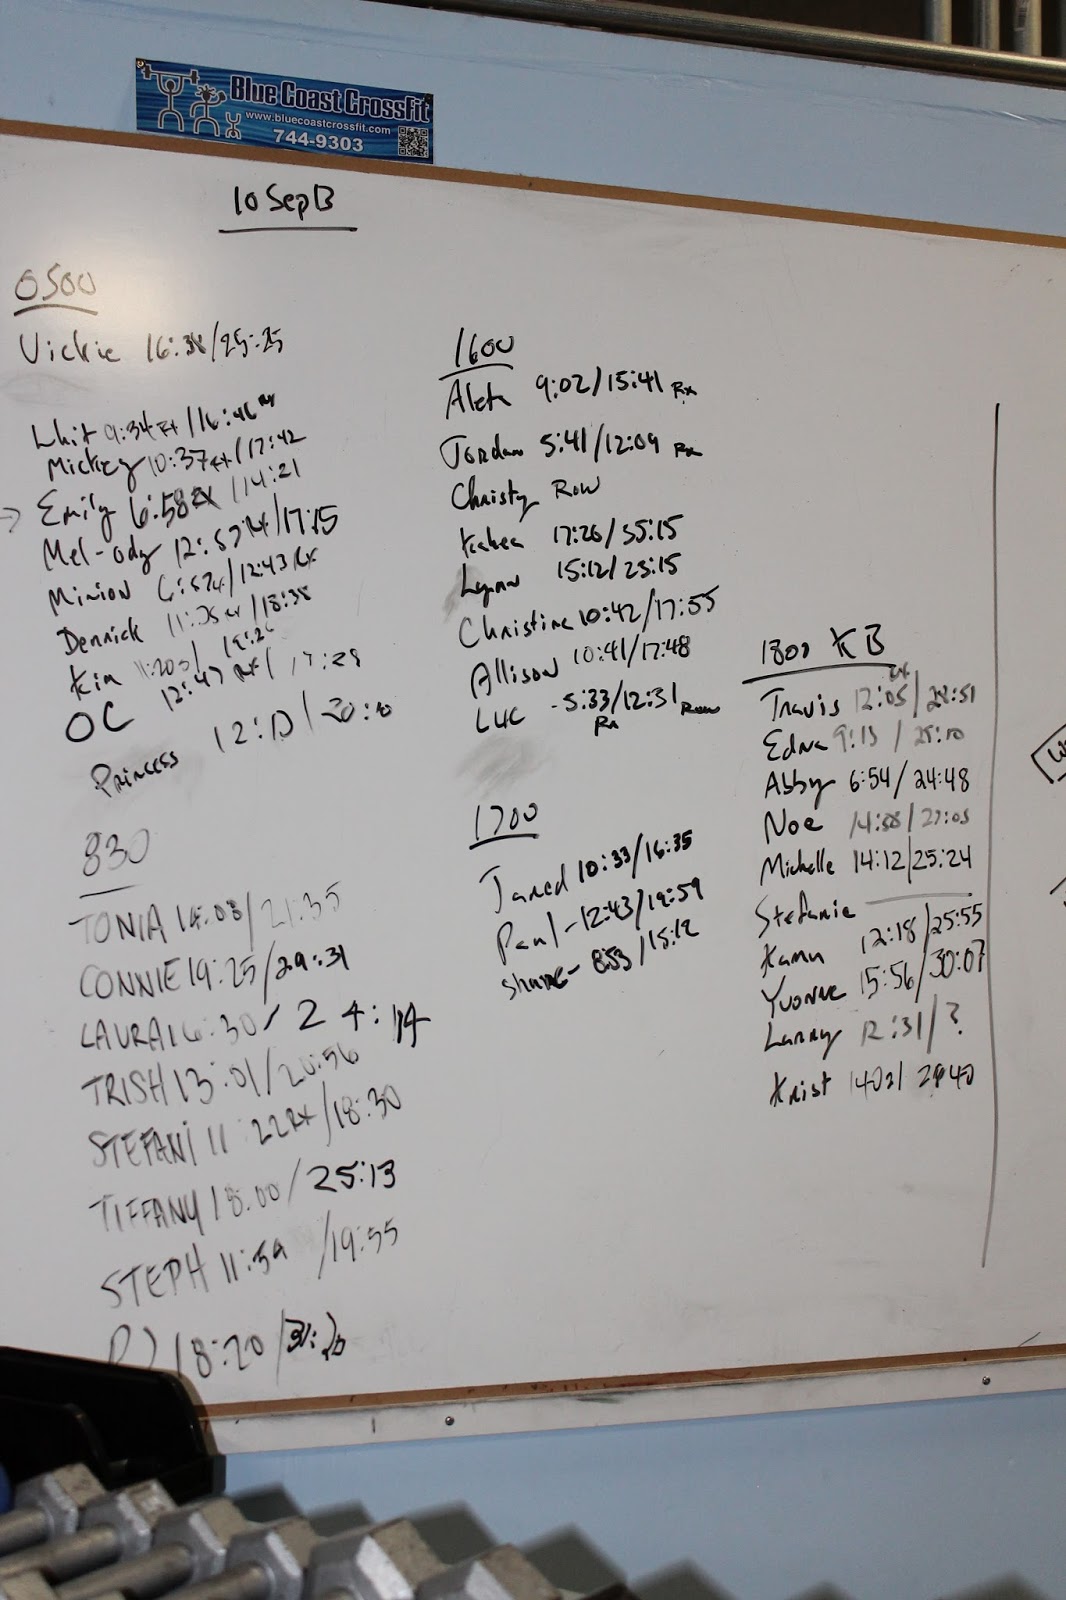 Blue Coast CrossFit
www.bluecoastcrossfit.com
744-9303
10 Sep 13
0500
Vickie 16:38/25:25
Whit 9:34 Rx/16:46 Rx
Mickey 10:37 Rx/17:42
→ Emily 6:58 Rx/14:21
Mel-ody 12:57 Rx/17:15
Minion 6:57 Rx/12:43 Rx
Derrick /18:38
Kim
OC 12:47 Rx/17:28
Princess 12:13/20:10
830
TONIA 14:03/21:35
CONNIE 19:25/29:31
LAURA 16:30/24:14
TRISH 13:01/20:56
STEFANI 11:22 Rx/18:30
TIFFANY 18:00/25:13
STEPH 11:39/19:55
18:20/
1600
Aleta 9:02/15:41 Rx
Jordan 5:41/12:09 Rx
Christy Row
17:26/35:15
Lynn 15:12/23:15
Christina 10:42/17:55
Allison 10:41/17:48
LUC -5:33/12:31 Row
Rx
1700
Jared 10:33/16:35
Paul-12:43/19:59
Shane- 8:53/15:12
1800 KB
Travis 12:05 Rx/28:51
Edna 9:13/25:10
Abby 6:54/24:48
Noe 14:58/27:05
Michelle 14:12/25:24
Stefanie
12:18/25:55
Yvonne 15:56/30:07
Lanny 12:31/?
Krist 1402/2940